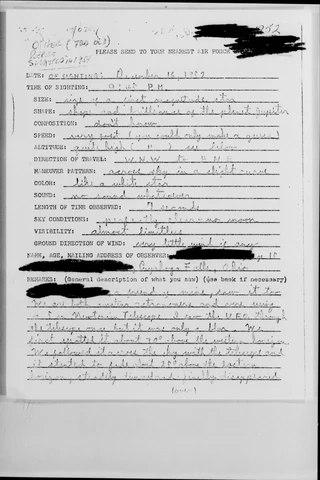 Other (Too old)
1952
PLEASE SEND TO YOUR NEAREST AIR FORCE
DATE: OF SIGHTING: December 16, 1952
TIME OF SIGHTING: P.M.
SIZE: size of a first magnitude star
SHAPE: shape and brilliance of the planet Jupiter
COMPOSITION: don't know
SPEED: very fast (you could only make a guess)
ALTITUDE: quite high ( " ) see below
DIRECTION OF TRAVEL: W.N.W. to E.N.E.
MANEUVER PATTERN: across sky in a slight curve
COLOR: like a white star
SOUND: no sound whatsoever
LENGTH OF TIME OBSERVED: 7 seconds
SKY CONDITIONS: perfectly clear no moon
VISIBILITY: almost limitless
GROUND DIRECTION OF WIND: very little wind if any
NAME, AGE, MAILING ADDRESS OF OBSERVER:
Cuyahoga Falls, Ohio
REMARKS: (General description of what you saw) (Use back if necessary)
a friend of mine, saw it too
We are both amateur astronomers and were using
a Newtonian Telescope. I saw the U.F.O. through
the telescope once but it was only a blur. We
first spotted it about 70° above the western horizon
We followed it across the sky with the telescope and
it started to fade about 20° above the eastern
horizon, steadily dimmed and finally disappeared
(over)